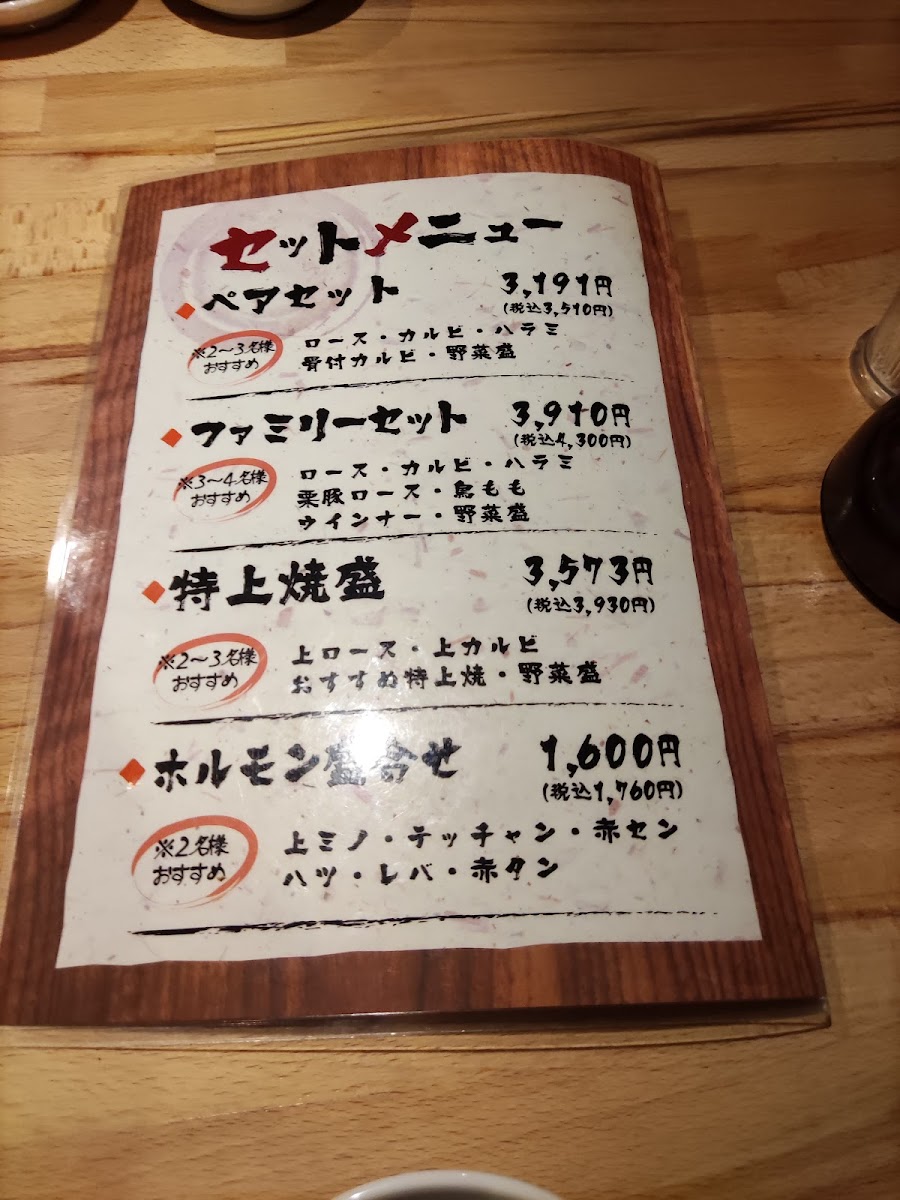 セットメニュー
◆ペアセット 3,191円
(税込3,510円)
※2〜3名様
おすすめ
ロース・カルビ・ハラミ
骨付カルビ・野菜盛
◆ファミリーセット 3,910円
(税込4,300円)
※3〜4名様
おすすめ
ロース・カルビ・ハラミ
栗豚ロース・鳥もも
ウインナー・野菜盛
◆特上焼盛 3,573円
(税込3,930円)
※2〜3名様
おすすめ
上ロース・上カルビ
おすすめ特上焼・野菜盛
◆ホルモン盛合せ 1,600円
(税込1,760円)
※2名様
おすすめ
上ミノ・テッチャン・赤セン
ハツ・レバ・赤タン